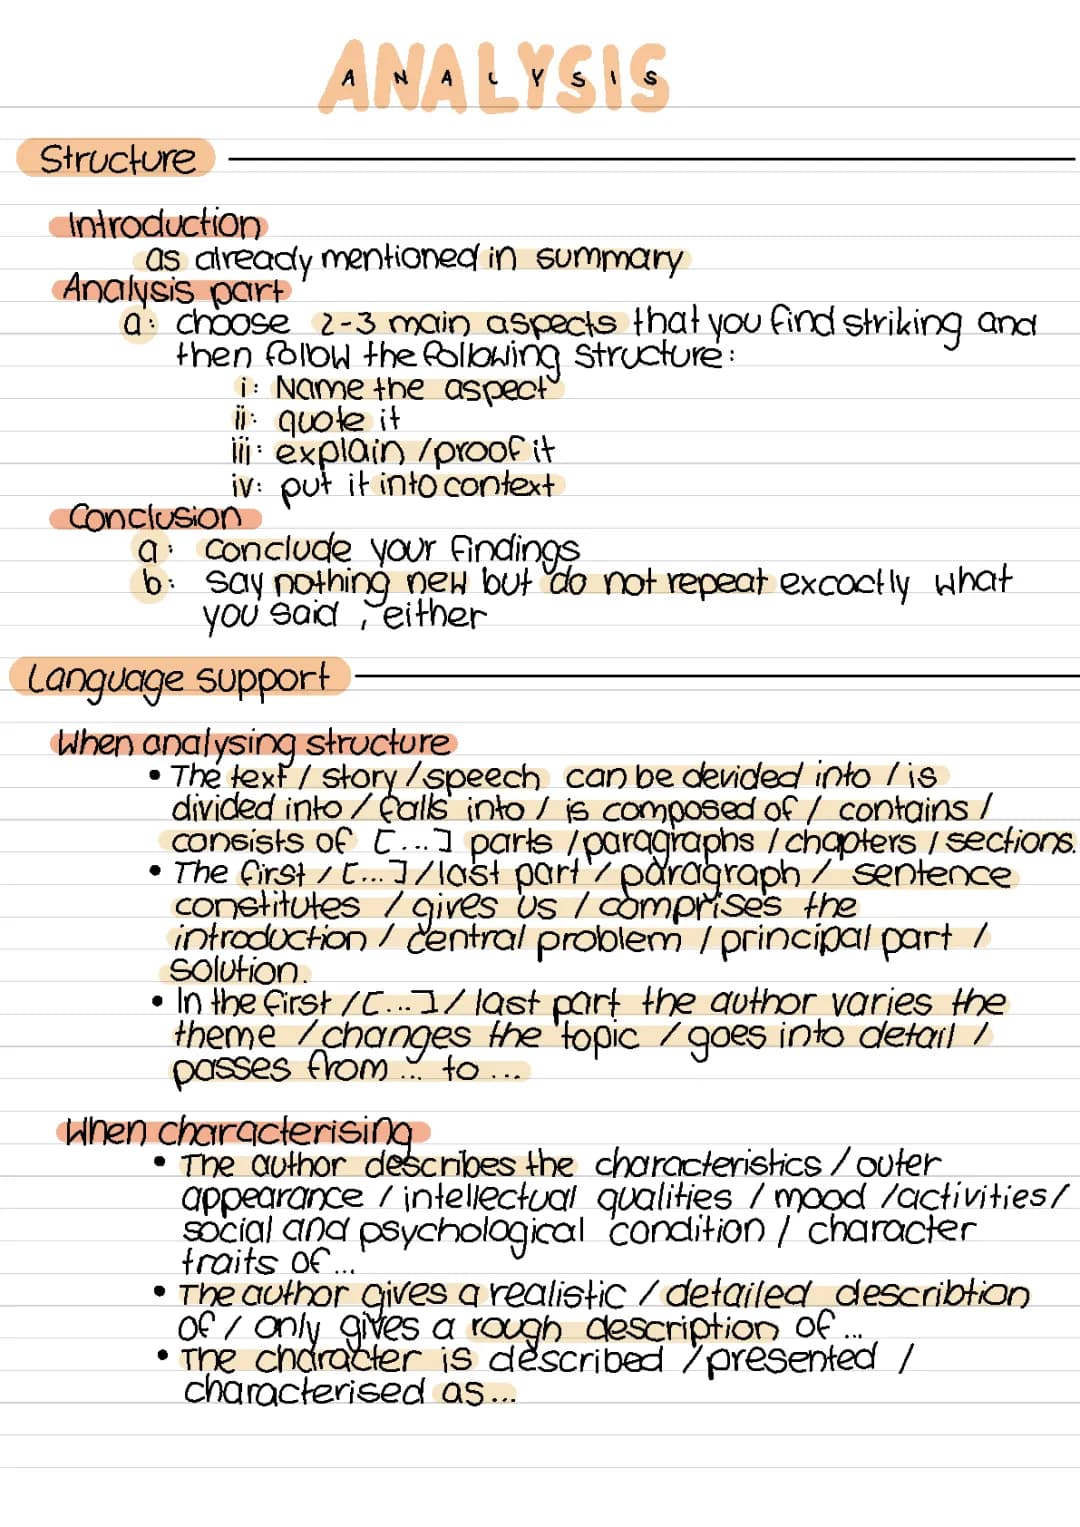 ANALYSIS
ANALYSIS
Structure
Introduction
as already mentioned in summary
Analysis part
a: choose 2-3 main aspects that you find striking and
then follow the following structure:
i: Name the aspect
ii: quote it
iii: explain / proof it
iv: put it into context
Conclusion
a: conclude your findings
b: say nothing new but do not repeat excactly what
you said, either
Language support
When analysing structure
• The text / story / speech can be devided into / is
divided into / falls into / is composed of / contains /
consists of [...] parts / paragraphs / chapters / sections.
• The first / [...] / last part / paragraph / sentence
constitutes / gives us / comprises the
introduction / central problem / principal part /
solution.
• In the first / [...] / last part the author varies the
theme / changes the topic / goes into detail /
passes from ... to ...
When characterising
• The author describes the characteristics / outer
appearance / intellectual qualities / mood / activities /
social and psychological condition / character
traits of ...
• The author gives a realistic / detailed describtion
of / only gives a rough description of ...
• The character is described / presented /
characterised as ...